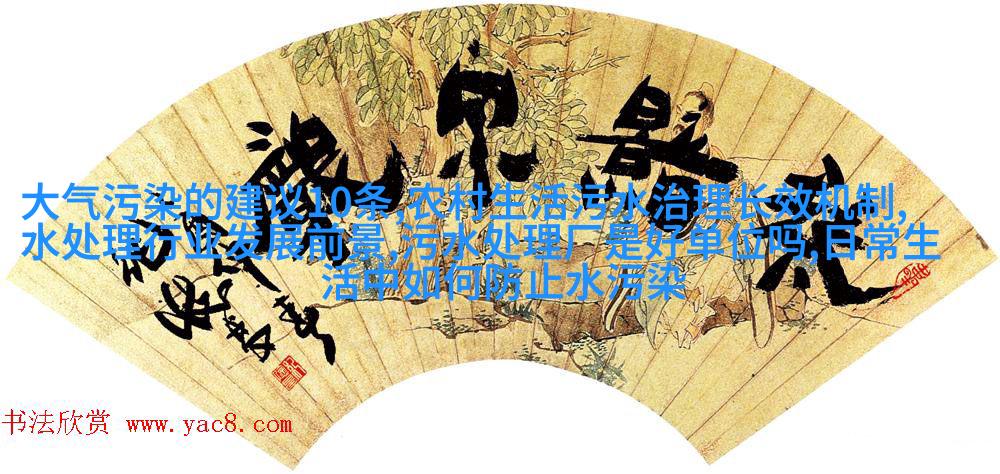 大气污染的建议10条,农村生活污水治理长效机制,
水处理行业发展前景,污水处理厂是好单位吗,日常生
活中如何防止水污染
书法欣赏 www.yac8.com